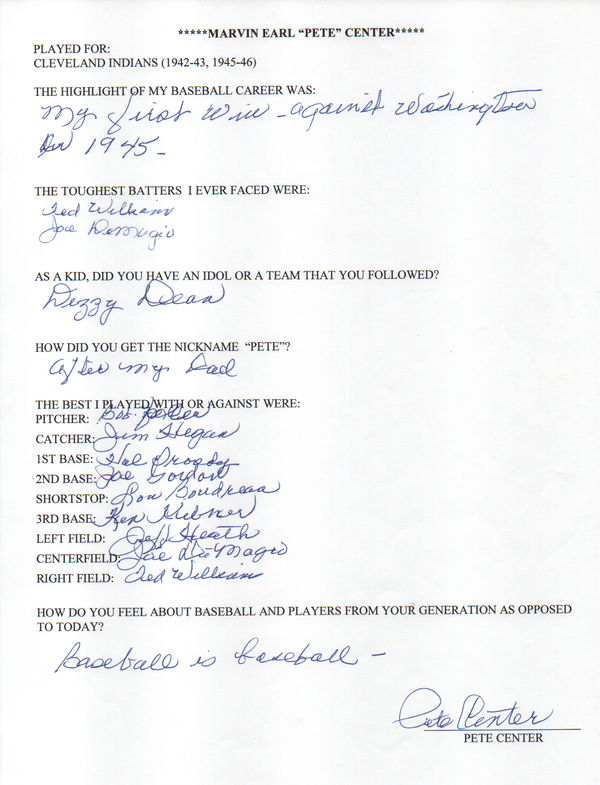 *****MARVIN EARL “PETE” CENTER*****
PLAYED FOR:
CLEVELAND INDIANS (1942-43, 1945-46)
THE HIGHLIGHT OF MY BASEBALL CAREER WAS:
My first win - against Washington
in 1945 -
THE TOUGHEST BATTERS I EVER FACED WERE:
Ted William
Joe DeMagio
AS A KID, DID YOU HAVE AN IDOL OR A TEAM THAT YOU FOLLOWED?
Dizzy Dean
HOW DID YOU GET THE NICKNAME “PETE”?
After my Dad
THE BEST I PLAYED WITH OR AGAINST WERE:
PITCHER: Bob
CATCHER: Jim Hegan
1ST BASE: Hal
2ND BASE: Joe Gordon
SHORTSTOP: Lou Boudreau
3RD BASE: Ken
LEFT FIELD: Jeff Heath
CENTERFIELD: Joe DiMagio
RIGHT FIELD: Ted William
HOW DO YOU FEEL ABOUT BASEBALL AND PLAYERS FROM YOUR GENERATION AS OPPOSED
TO TODAY?
Baseball is baseball -
Pete Center
PETE CENTER